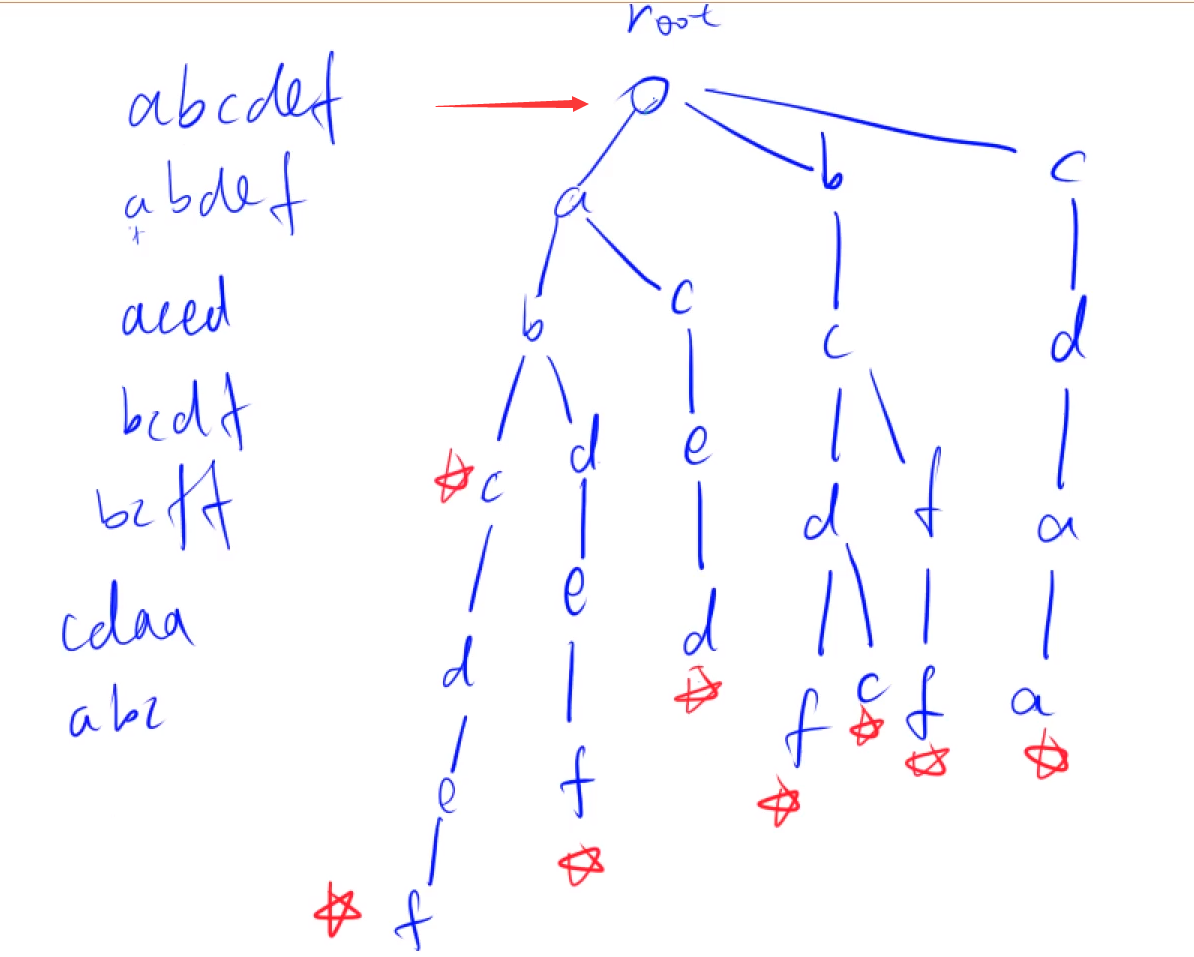 root
abcdef
abdef
aced
bcdf
bcff
cdaa
abc
a
b
c
b
c
c
d
c
d
e
d
f
a
e
d
d
f
c
f
a
e
f
f